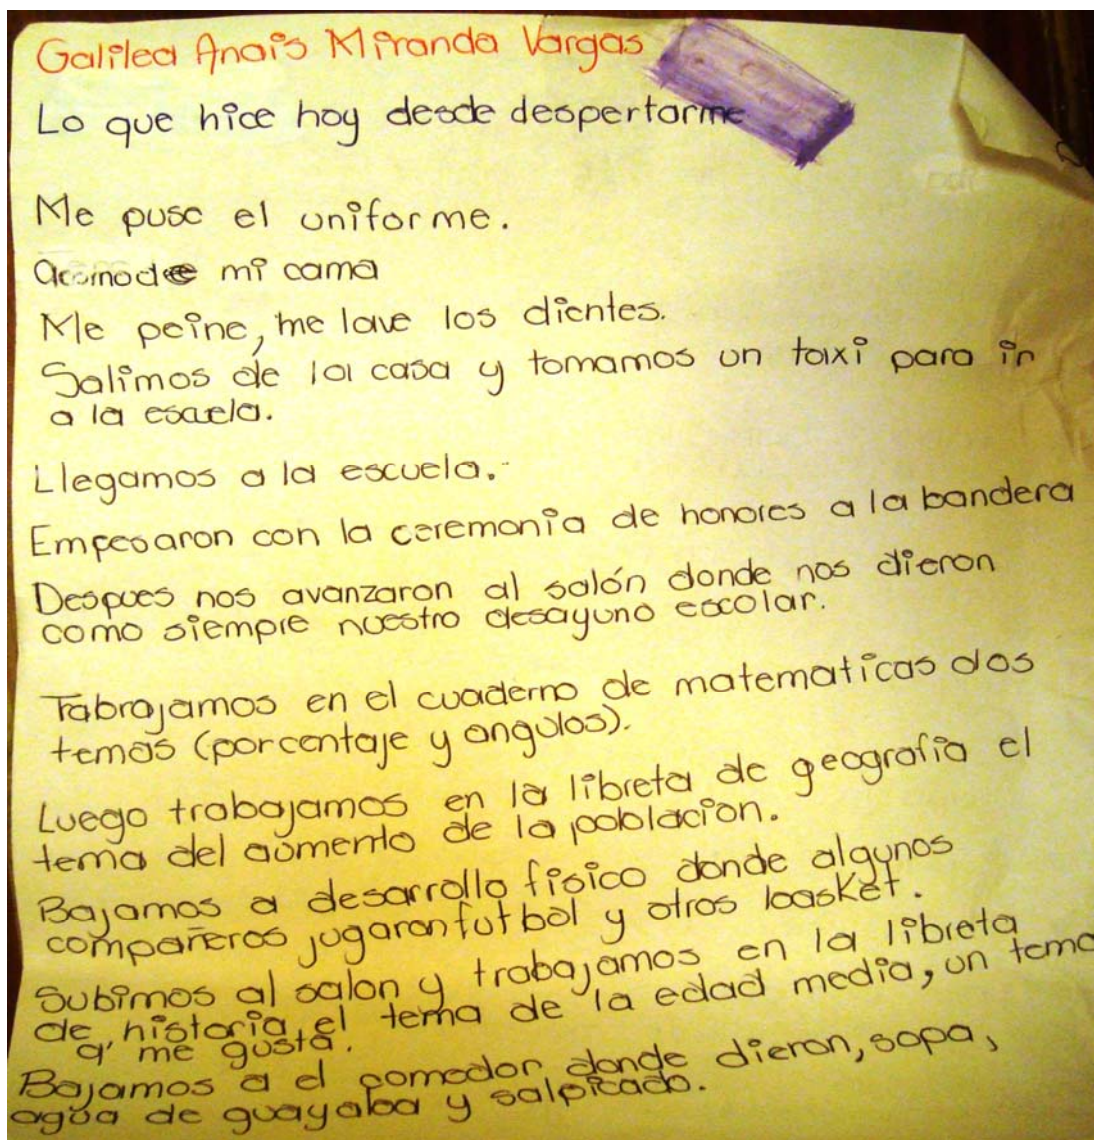 Galilea Anais Miranda Vargas
Lo que hice hoy desde despertarme
Me puse el uniforme.
acomode mi cama
Me peine, me lave los dientes.
Salimos de la casa y tomamos un taxi para ir
a la escuela.
Llegamos a la escuela.
Empesaron con la ceremonia de honores a la bandera
Despues nos avanzaron al salón donde nos dieron
como siempre nuestro desayuno escolar.
Trabrajamos en el cuaderno de matematicas dos
temas (porcentaje y angulos).
Luego trabajamos en la libreta de geografia el
tema del aumento de la poblacion.
Bajamos a desarrollo fisico donde algunos
compañeros jugaron futbol y otros basket.
Subimos al salon y trabajamos en la libreta
de historia, el tema de la edad media, un tema
q' me gusta.
Bajamos a el comedor donde dieron, sopa,
agua de guayaba y salpicado.